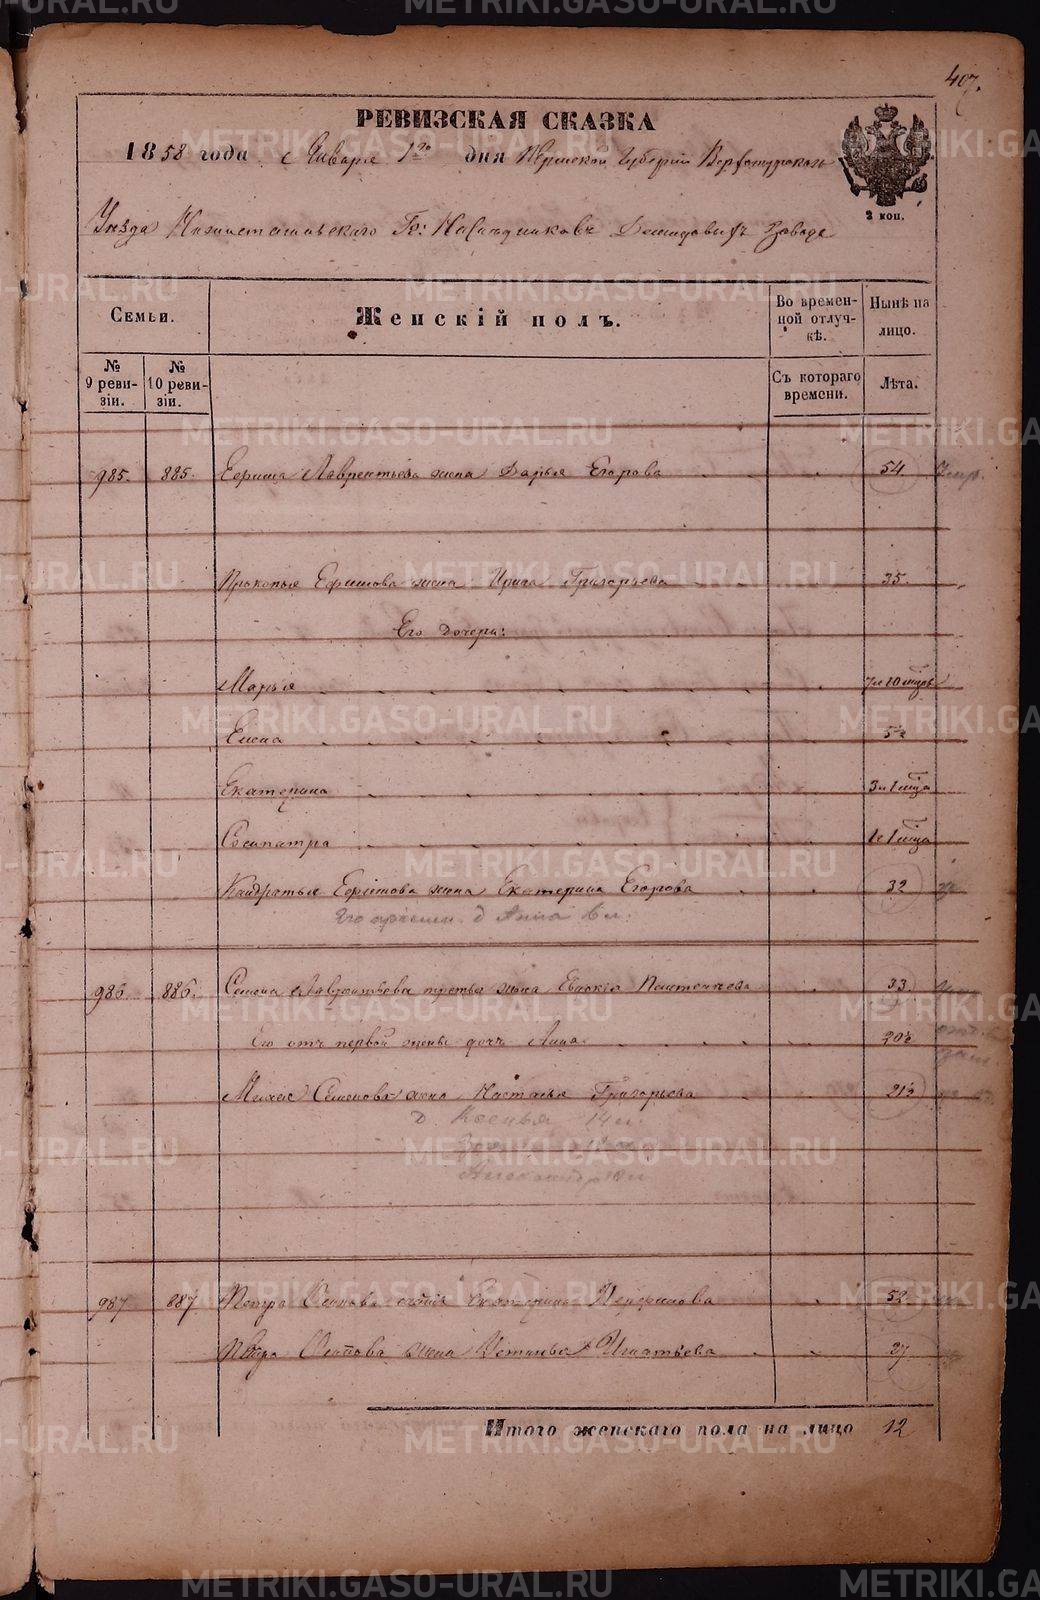 407.
РЕВИЗСКАЯ СКАЗКА
1858 года Января 1го дня Пермской Губернии Верхотурскаго
2 коп.
Уезда Нижнетагильскаго Гг: Наследниковъ Демидовыхъ Завода
Семьи.
Женскій полъ.
Во временной отлучкѣ.
Нынѣ на лицо.
№ 9 ревизіи.
№ 10 ревизіи.
Съ котораго времени.
Лѣта.
985. 885. Ефима Лаврентьева жена Дарья Егорова 54
Прокопья Ефимова жена Ирина Григорьева 35.
Его дочери:
Марья 7 и 10 мцъ
Елена 5½
Екатерина 3 и 1 мца
Сосипатра 1 и 1 мца
Кондратья Ефимова жена Екатерина Егорова 32
Его д Анна
986. 886. Семена Лаврентьева третья жена Евдокія 33.
Его отъ первой жены дочь Анна 20½
Семенова жена Настасья Григорьева 21½
д. Ксенья 14 л.
Александра
987 887 Петра Осипова Екатерина 52
Петра Осипова жена Устинья Игнатьева 37
Итого женскаго пола на лицо 12
METRIKI.GASO-URAL.RU